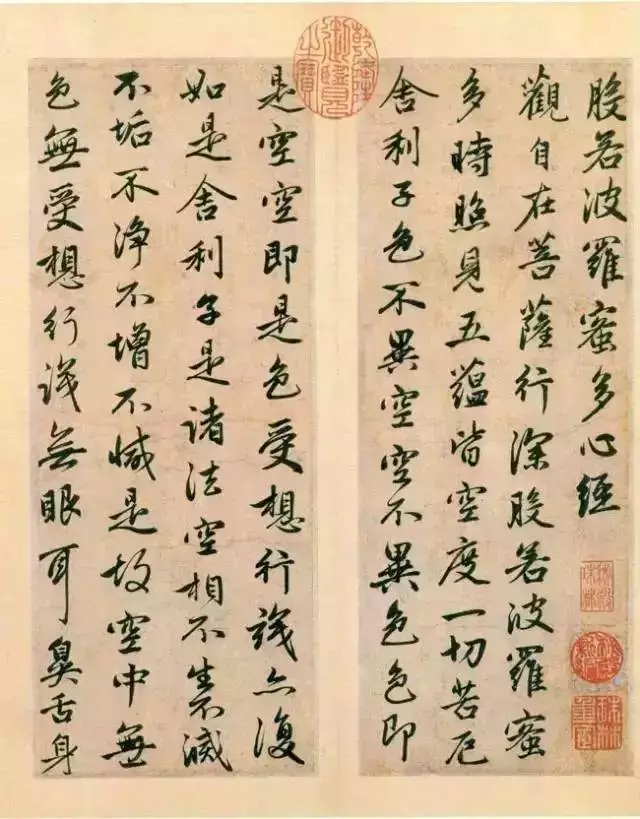 乾隆御覽之寶
般若波羅蜜多心經
觀自在菩薩行深般若波羅蜜
多時照見五蘊皆空度一切苦厄
舍利子色不異空空不異色色即
是空空即是色受想行識亦復
如是舍利子是諸法空相不生不滅
不垢不浄不增不減是故空中無
色無受想行識無眼耳鼻舌身